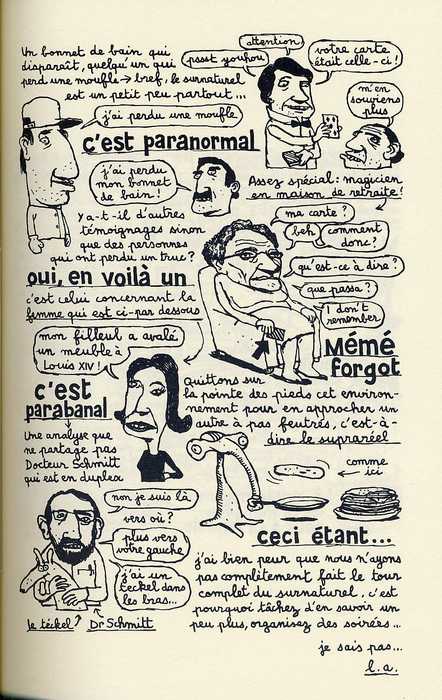 Un bonnet de bain qui
disparaît, quelqu'un qui
perd une moufle → bref, le surnaturel
est un petit peu partout...
attention
pssst youhou
votre carte
était celle-ci !
m'en
souviens
plus
j'ai perdu une moufle
c'est paranormal
j'ai perdu
mon bonnet
de bain !
Assez spécial : magicien
en maison de retraite !
Y a-t-il d'autres
témoignages sinon
que des personnes
qui ont perdu un truc ?
ma carte ?
beh
comment
donc ?
qu'est-ce à dire ?
que passa ?
I don't
remember
oui, en voilà un
c'est celui concernant la
femme qui est ci-par dessous
Mémé
forgot
mon filleul a avalé
un meuble à
Louis XIV !
c'est
parabanal
Une analyse que
ne partage pas
Docteur Schmitt
qui est en duplex
Quittons sur
la pointe des pieds cet environ-
nement pour en approcher un
autre à pas feutrés, c'est-à-
dire le supraréel
comme
ici
non je suis là
vers où ?
plus vers
votre gauche
j'ai un
teckel dans
les bras...
le téckel
Dr Schmitt
ceci étant...
j'ai bien peur que nous n'ayons
pas complètement fait le tour
complet du surnaturel, c'est
pourquoi tâchez d'en savoir un
peu plus, organisez des soirées...
je sais pas...
l.a.